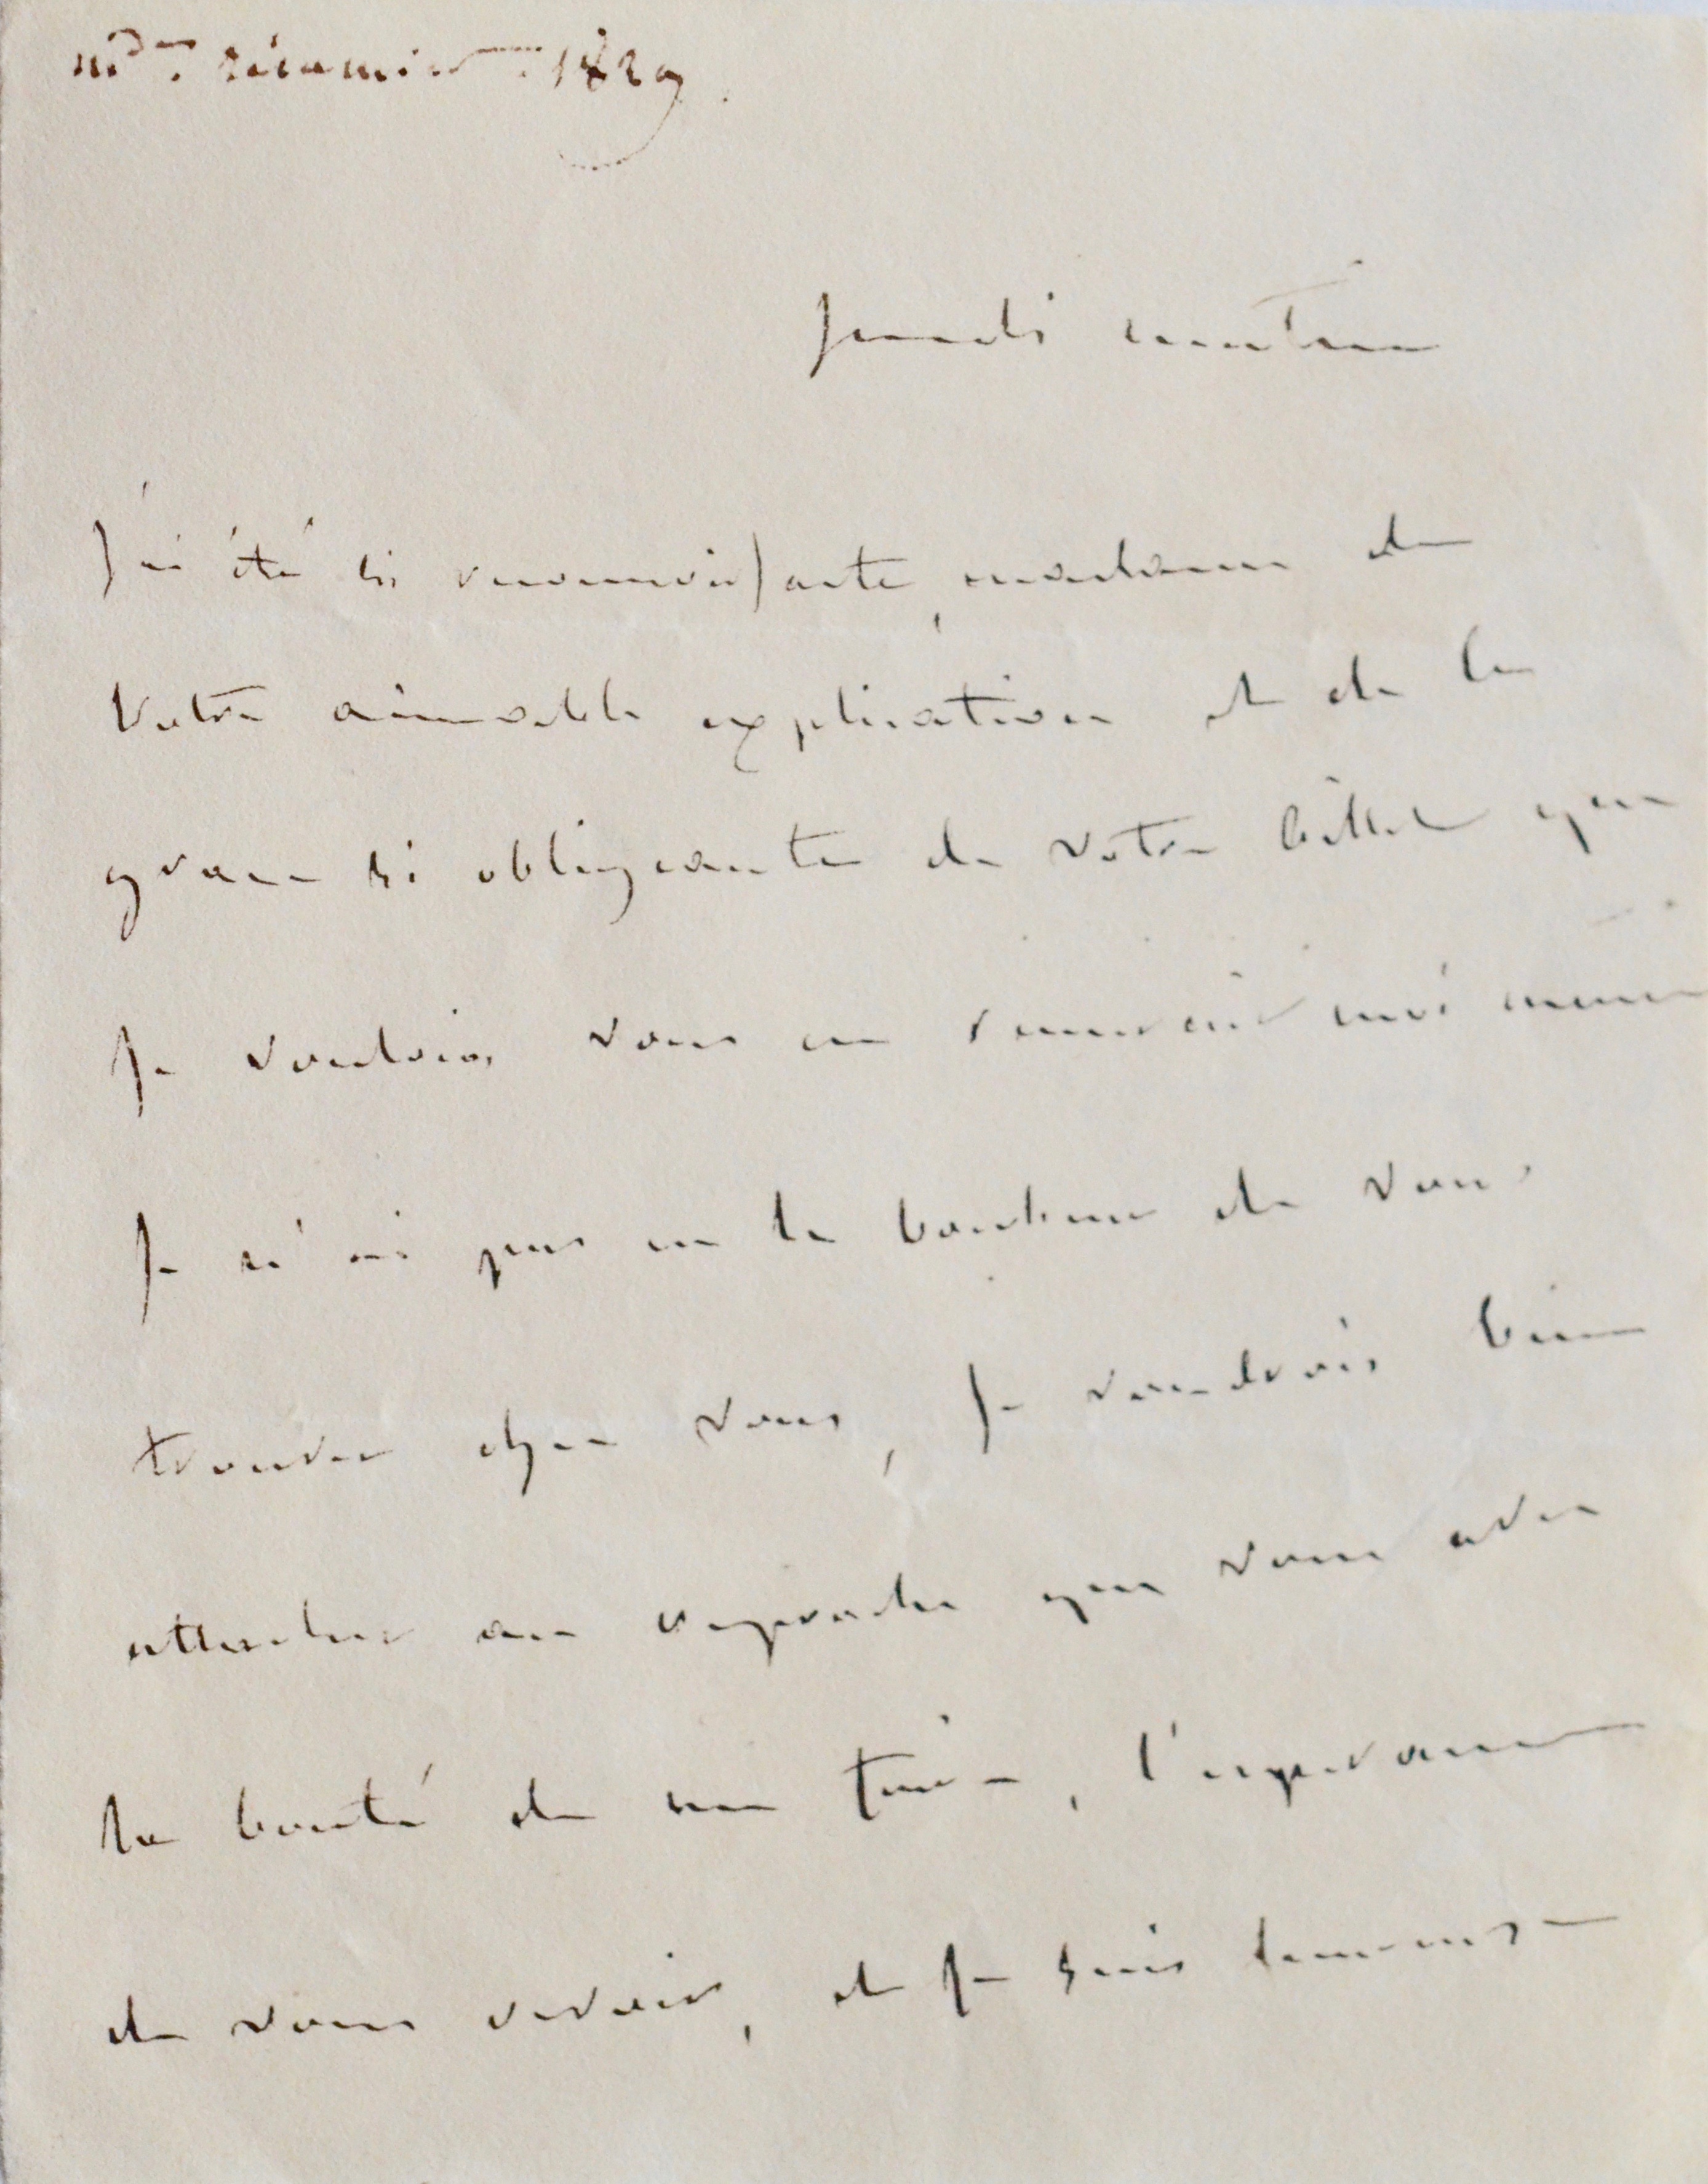 md. récamier. 1829.
jeudi matin
J'ai été si reconnoissante, madame de
votre aimable explication et de la
grace si obligeante de votre billet que
je voulois vous en remercier moi même
je n'ai pas eu le bonheur de vous
trouver chez vous, je voudrois bien
attacher au reproche que vous avez
la bonté de me faire, l'esperance
de vous revoir, et je suis